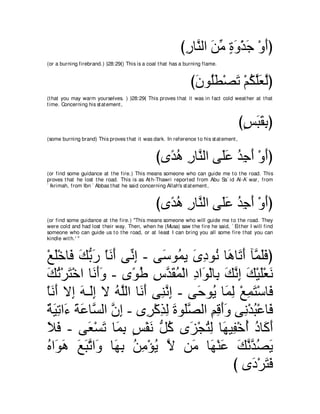 (أَوْ جَذْوَةٍ مِّنَ النَّارِ)
(or a burning firebrand.) )28:29(( This is a coal that has a burning flame.
(لَعَلَّكُمْ تَصْطَلُونَ)
(that you may warm yourselves. ) )28:29( This proves that it was in fact cold weather at that
time. Concerning his statement,
(بِقَبَسٍ)
(some burning brand) This proves that it was dark. In reference to his statement,
(أَوْ أَجِدُ عَلَى النَّارِ هُدًى)
(or find some guidance at the fire.) This means someone who can guide me to the road. This
proves that he lost the road. This is as Ath-Thawri reported from Abu Sa`id Al-A`war, from
`Ikrimah, from Ibn `Abbas that he said concerning Allah's statement,
(أَوْ أَجِدُ عَلَى النَّارِ هُدًى)
(or find some guidance at the fire.) "This means someone who will guide me to the road. They
were cold and had lost their way. Then, when he (Musa) saw the fire he said, `Either I will find
someone who can guide us to the road, or at least I can bring you all some fire that you can
kindle with.' "
(فَلَمَّآ أَتَاهَا نُودِىَ يمُوسَى - إِنِّى أَنَاْ رَبُّكَ فَاخْلَعْ
نَعْلَيْكَ إِنَّكَ بِالْوَادِ الْمُقَدَّسِ طُوًى - وَأَنَا اخْتَرْتُكَ
فَاسْتَمِعْ لِمَا يُوحَى - إِنَّنِى أَنَا اللَّهُ لا إِلَـهَ إِلا أَنَاْ
فَاعْبُدْنِى وَأَقِمِ الصَّلَوةَ لِذِكْرِى - إِنَّ السَّاعَةَ ءَاتِيَةٌ
أَكَادُ أُخْفِيهَا لِتُجْزَى كُلُّ نَفْسٍ بِمَا تَسْعَى - فَلاَ
يَصُدَّنَّكَ عَنْهَا مَن لاَّ يُؤْمِنُ بِهَا وَاتَّبَعَ هَوَاهُ
فَتَرْدَى )